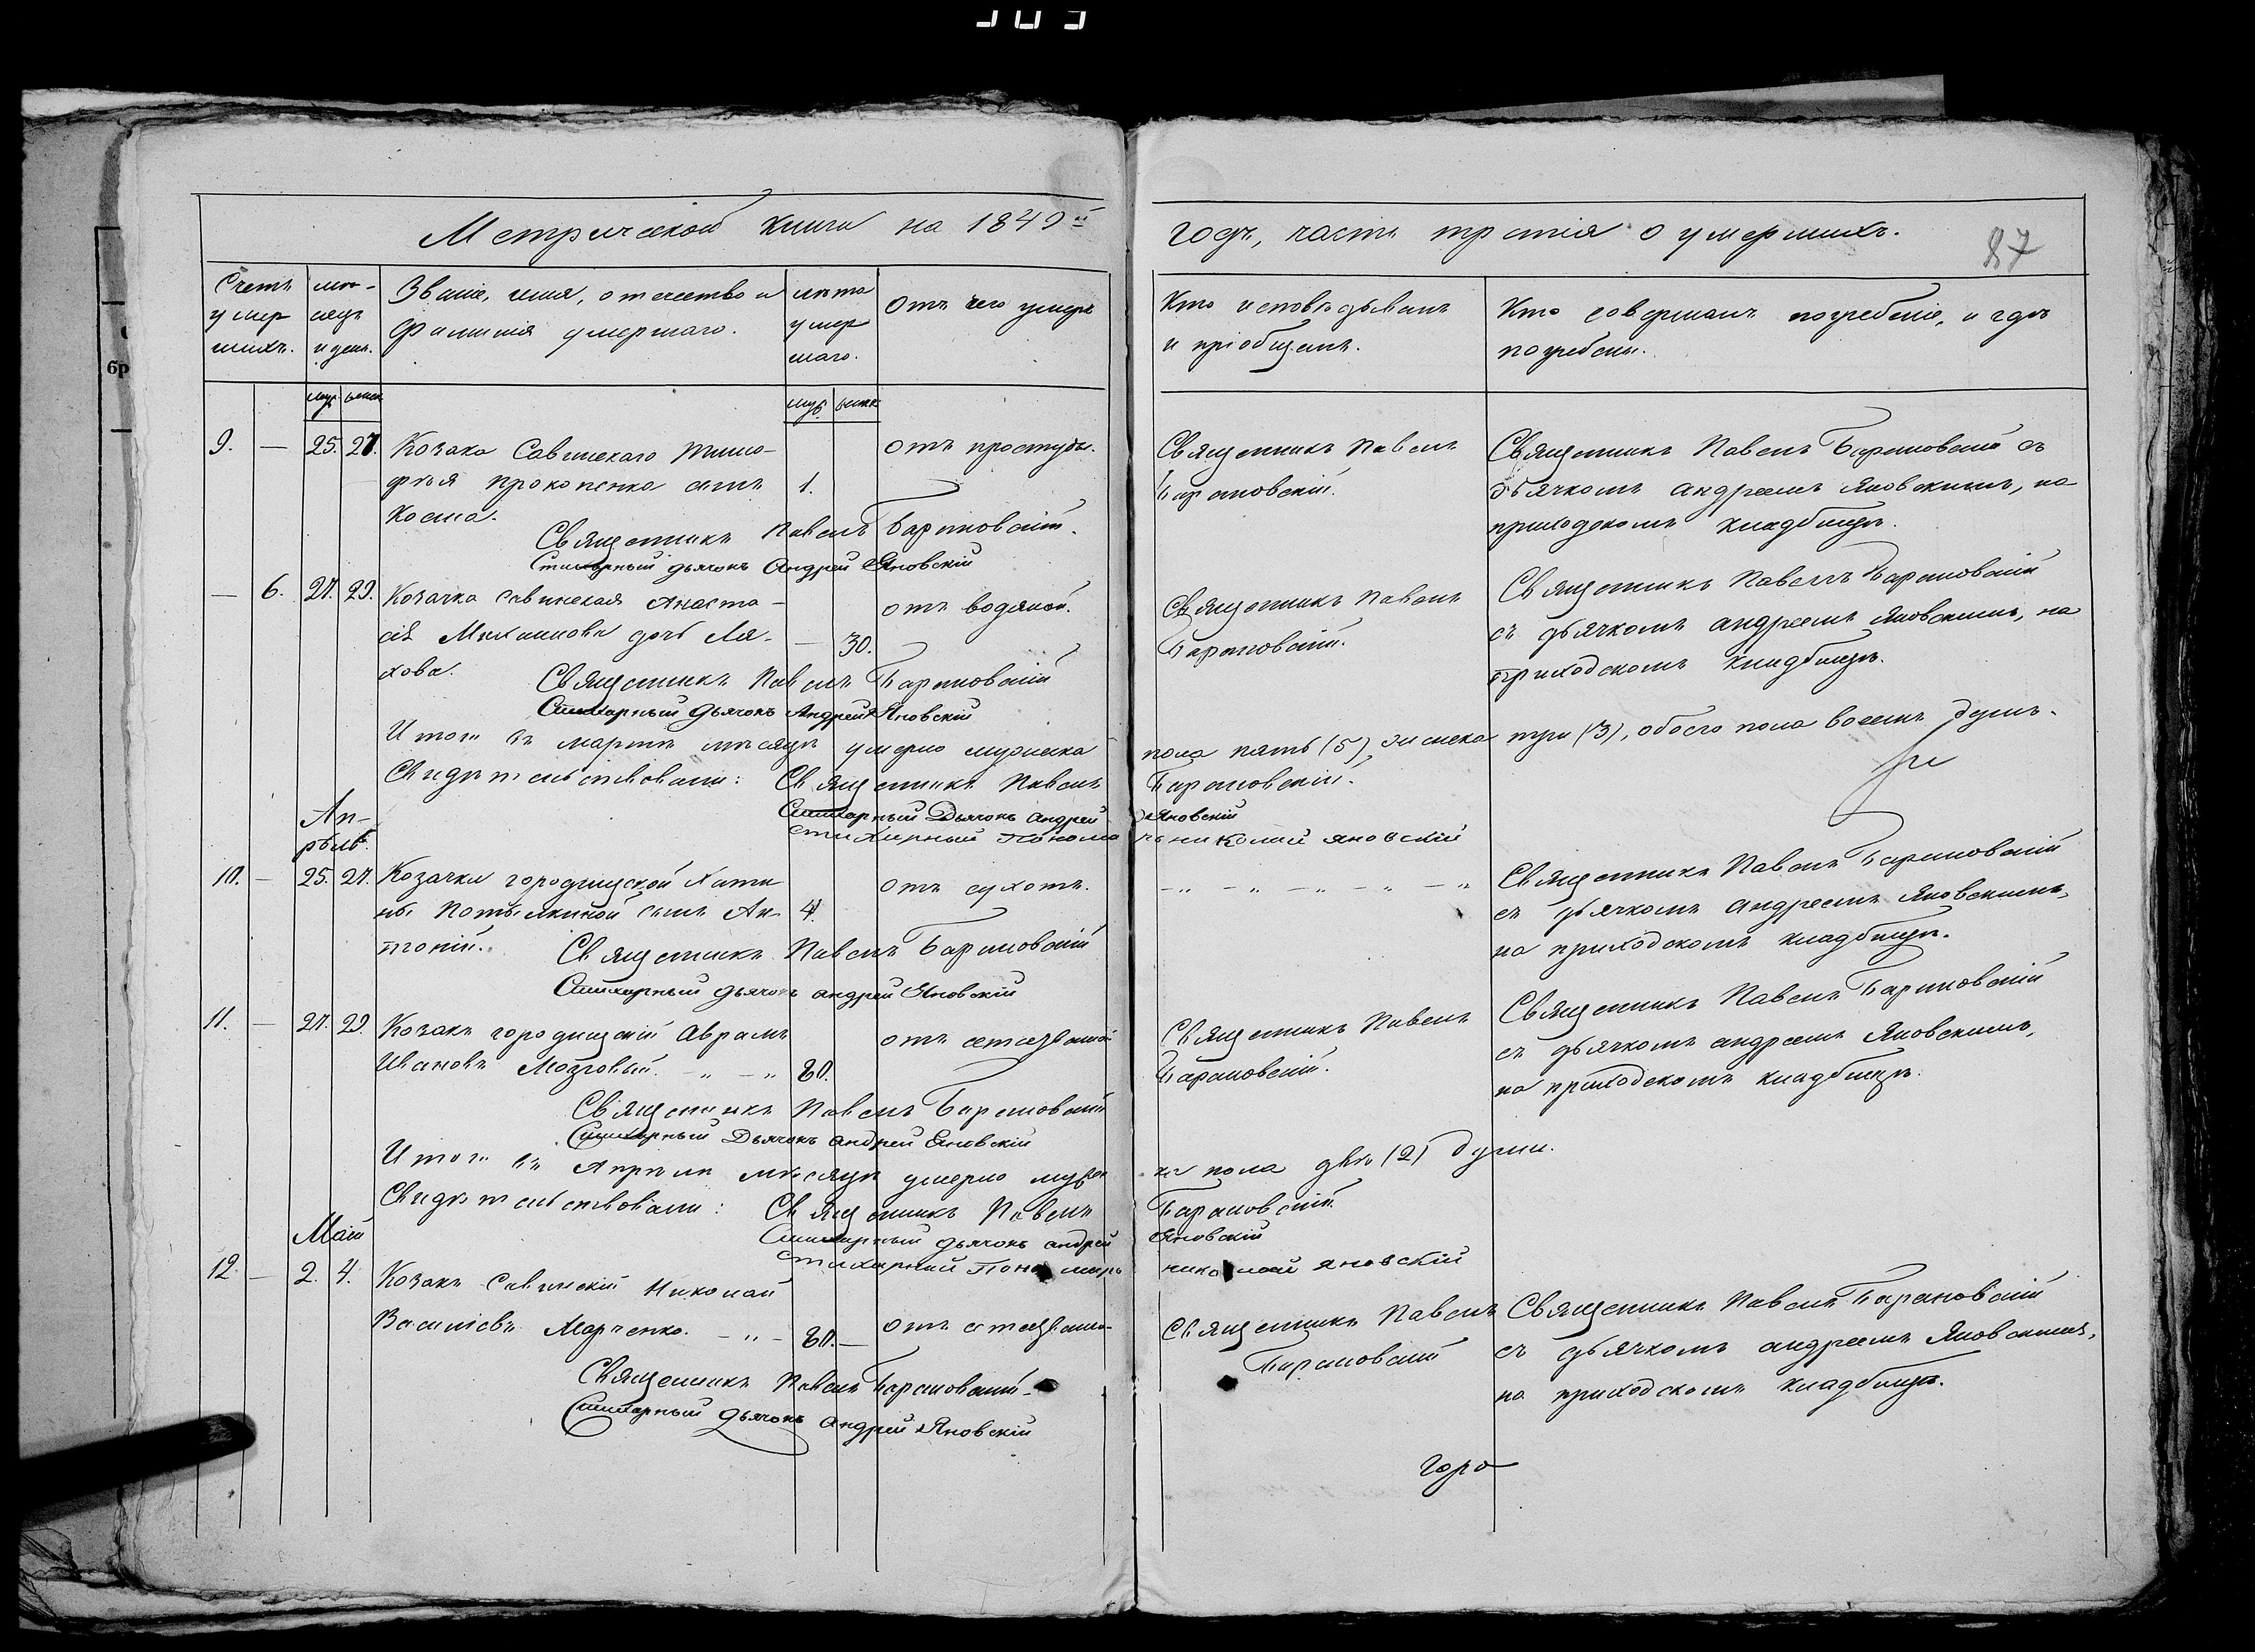 Метрической книги на 1849й
годъ, часть третія о умершихъ.
87
Счетъ умершихъ.
мѣсяцъ и день.
Званіе, имя, отечество и
фамилія умершаго.
лѣта умершаго.
Отъ чего умеръ
Кто исповѣдывалъ
и пріобщалъ.
Кто совершалъ погребеніе, и гдѣ
погребены.
9. — 25. 27. Козака Савинскаго Тимо-
фѣя Прокопенка сынъ 1.
Косма.
отъ простуды.
Священникъ Павелъ
Барановскій.
Священникъ Павелъ Барановскій съ
дьячкомъ Андреемъ Яновскимъ, на
приходскомъ кладбищѣ.
Священникъ Павелъ Барановскій.
Стихарный дьячокъ Андрей Яновскій
— 6. 27. 29. Козачка Савинская Анаста-
сія Михаилова дочь Ля- — 30.
хова.
отъ водяной.
Священникъ Павелъ
Барановскій.
Священникъ Павелъ Барановскій
съ дьячкомъ Андреемъ Яновскимъ, на
приходскомъ кладбищѣ.
Священникъ Павелъ Барановскій
Стихарный Дьячокъ Андрей Яновскій
Итого въ мартѣ мѣсяцѣ умерло мужеска пола пять (5), женска три (3), обоего пола восемь душъ.
Свидѣтельствовали: Священникъ Павелъ Барановскій.
Стихарный Дьячокъ Андрей Яновскій
стихарный Пономарь николай яновскій
Апрѣль.
10. — 25. 27. Козачки городищской
сынъ Ан- 4.
тоній.
отъ сухотъ.
— „ — „ — „ — „ — „
Священникъ Павелъ Барановскій
съ дьячкомъ Андреемъ Яновскимъ,
на приходскомъ кладбищѣ.
Священникъ Павелъ Барановскій
Стихарный дьячокъ андрей Яновскій
11. — 27. 29. Козакъ городищскій Аврамъ
Ивановъ Мозговый. — „ — „ 80.
отъ
Священникъ Павелъ
Барановскій.
Священникъ Павелъ Барановскій
съ дьячкомъ андреемъ Яновскимъ,
на приходскомъ кладбищѣ.
Священникъ Павелъ Барановскій
Стихарный Дьячокъ андрей Яновскій
Итого въ Апрѣлѣ мѣсяцѣ умерло мужеска пола двѣ (2) души.
Свидѣтельствовали: Священникъ Павелъ Барановскій
Стихарный дьячокъ андрей Яновскій
стихарный Пономарь николай яновскій
Май
12. — 2. 4. Козакъ Савинскій Николай
Василіевъ Марченко. — „ — 80. —
отъ
Священникъ Павелъ
Барановскій
Священникъ Павелъ Барановскій
съ дьячкомъ андреемъ Яновскимъ,
на приходскомъ кладбищѣ.
Священникъ Павелъ Барановскій.
Стихарный Дьячокъ Андрей Яновскій
Горо